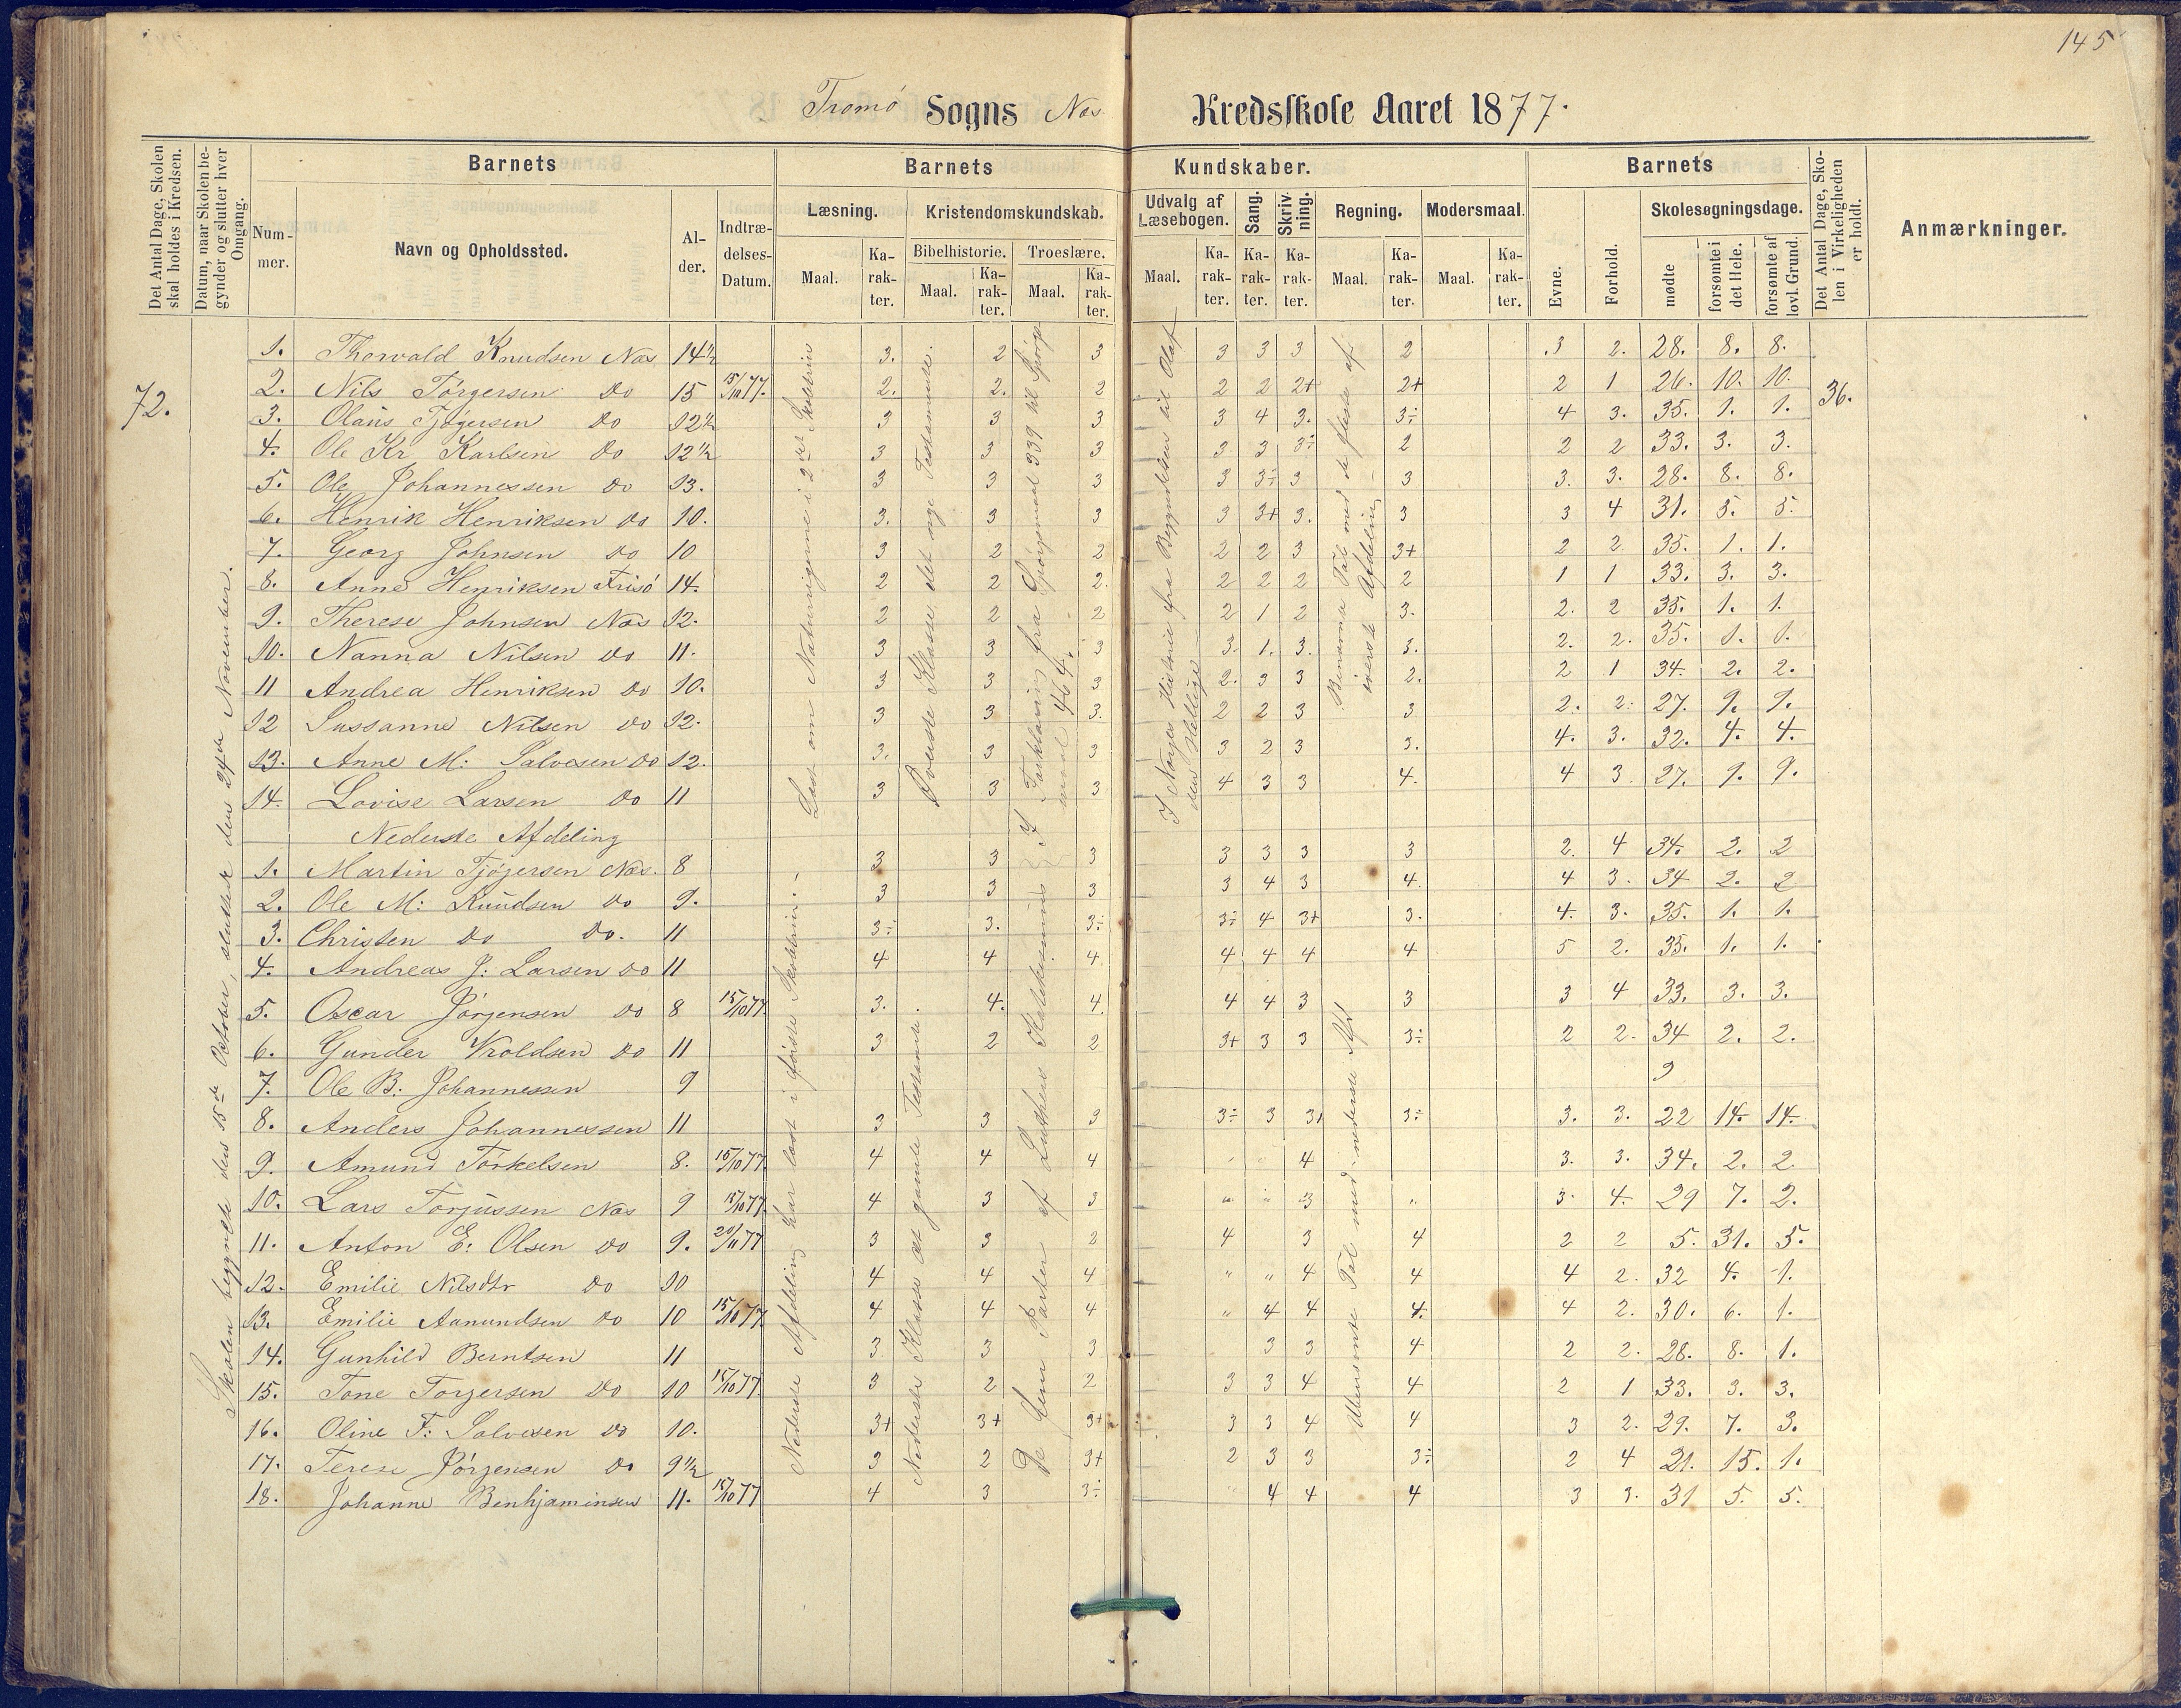 145
Tromö Sogns Næs Kredsskole Aaret 1877.
Det Antal Dage, Skolen skal holdes i Kredsen.
Datum, naar Skolen begynder og slutter hver Omgang.
Barnets
Barnets Kundskaber.
Barnets
Det Antal Dage, Skolen i Virkeligheden er holdt.
Anmærkninger.
Nummer.
Navn og Opholdssted.
Alder.
Indtrædelses-Datum.
Læsning.
Kristendomskundskab.
Udvalg af Læsebogen.
Sang.
Skrivning.
Regning.
Modersmaal.
Evne.
Forhold.
Skolesøgningsdage.
Bibelhistorie.
Troeslære.
Maal. Karakter. Maal. Karakter. Maal. Karakter. Maal. Karakter. Karakter. Karakter. Maal. Karakter. Maal. Karakter.
mødte
forsømte i det Hele.
forsømte af lovl. Grund.
72.
36.
Skolen begyndte den 15de October, sluttede den 24de November.
Læst om Naturrigerne i 2det Skoletrin
Øverste Klasse, det nye Testamente.
I Forklaring fra Spörgsmaal 339 til Spörgsmaal 464.
I Norges Historie fra Begyndelsen til Olaf den Hellige
Benævnte Tal med de fleste af øverste Afdeling
1. Thorvald Knudsen Næs 14½ 3. 2 3 3 3 3 2 3 2. 28. 8. 8.
2. Nils Törgersen Do 15 15/10 77. 2. 2. 2 2 2 2+ 2+ 2 1 26. 10. 10.
3. Olaüs Tjögersen Do 12½ 3 3 3 3 4 3. 3÷ 4 3. 35. 1. 1.
4. Ole Kr Karlsen Do 12½ 3 3 3 3 3 3÷ 2 2 2 33. 3. 3.
5. Ole Johannessen Do 13. 3 3 3 3 3÷ 3 3 3. 3. 28. 8. 8.
6. Henrik Henriksen Do 10. 3. 3 3 3 3+ 3. 3 3 4 31. 5. 5.
7. Georg Johnsen Do 10 3 2 2 2 2 3 3+ 2 2. 35. 1. 1.
8. Anne Henriksen Frisö 14. 2 2 2. 2 2 2 2 1 1 33. 3. 3.
9. Therese Johnsen Næs 12. 2 2 2 2 1 2 3. 2. 2 35. 1. 1.
10. Nanna Nilsen Do 11. 3 3 3 3. 1. 3. 3. 2. 2. 35. 1. 1.
11 Andrea Henriksen Do 10. 3 3 3 2. 3 3 2. 2 1 34. 2. 2.
12 Sussanne Nilsen Do 12. 3 3 3. 2 2 3 3 2. 2. 27. 9. 9.
13. Anne M: Salvesen Do 12. 3. 3 3 3 2 3 3. 4. 3. 32. 4. 4.
14. Lovise Larsen Do 11 3 3 3 4 3 3 4. 4 3. 27. 9. 9.
Nederste Afdeling
Nederste Afdeling har læst i første Skoletrin.
Nederste Klasse det gamle Testamente
De fem Parter af Luthers Katekismus
Ubenævnte Tal med nederste Afd
1. Martin Tjögersen Næs. 8 3 3 3 3 3 3 3 2. 4 34. 2. 2
2. Ole M: Knudsen Do 9. 3 3 3 3 4 3 4. 4 3. 34 2. 2
3. Christen Do Do. 11 3÷ 3. 3÷ 3÷ 4 3+ 3. 4. 3. 35. 1. 1.
4. Andreas J: Larsen Do 11 4 4 4. 4 4 4 4 5 2. 35. 1. 1.
5. Oscar Jörgensen Do 8 15/10 77. 3. 4. 4. 4 4 3 3 3 4 33. 3. 3.
6. Gunder Kroldsen Do 11 3 2 2 3+ 3 3 3÷ 2 2. 34 2. 2.
7. Ole B: Johannessen 9 9
8. Anders Johannessen 11 3 3 3 3÷ 3 3+ 3÷ 3. 3. 22 14. 14.
9. Amund Törkelsen 8. 15/10 77. 4 4 4 4 3. 3. 34. 2. 2.
10. Lars Torjussen Næs 9 15/10 77. 4 3 3 " " 3 " 3. 4. 29 7. 2.
11. Anton E: Olsen Do 9. 20/11 77 3 3 2 4 3 4 2 2 5. 31. 5.
12. Emilie Nilsdtr Do 10 4 4 4 " " 4 4 4 2. 32 4. 1.
13. Emilie Aanundsen Do 10 15/10 77. 4 4 4 " 4 4 4. 4 2. 30. 6. 1.
14. Gunhild Berntsen 11 3 3 3 3 3 4 2 2. 28. 8. 1.
15. Tone Torgersen Do 10 15/10 77. 3 2 2 3 3 4 4 2 1 33. 3. 3.
16. Oline F: Salvesen Do 10. 3+ 3+ 3+ 3 3 4 4 3 2. 29. 7. 3.
17. Terese Jörgensen Do 9½ 3 2 3+ 2 3 3 3÷ 2 4 21. 15. 1.
18. Johanne Benhjaminsen 11. 15/10 77 4 3 3÷ 4 4 4 3 3. 31 5. 5.